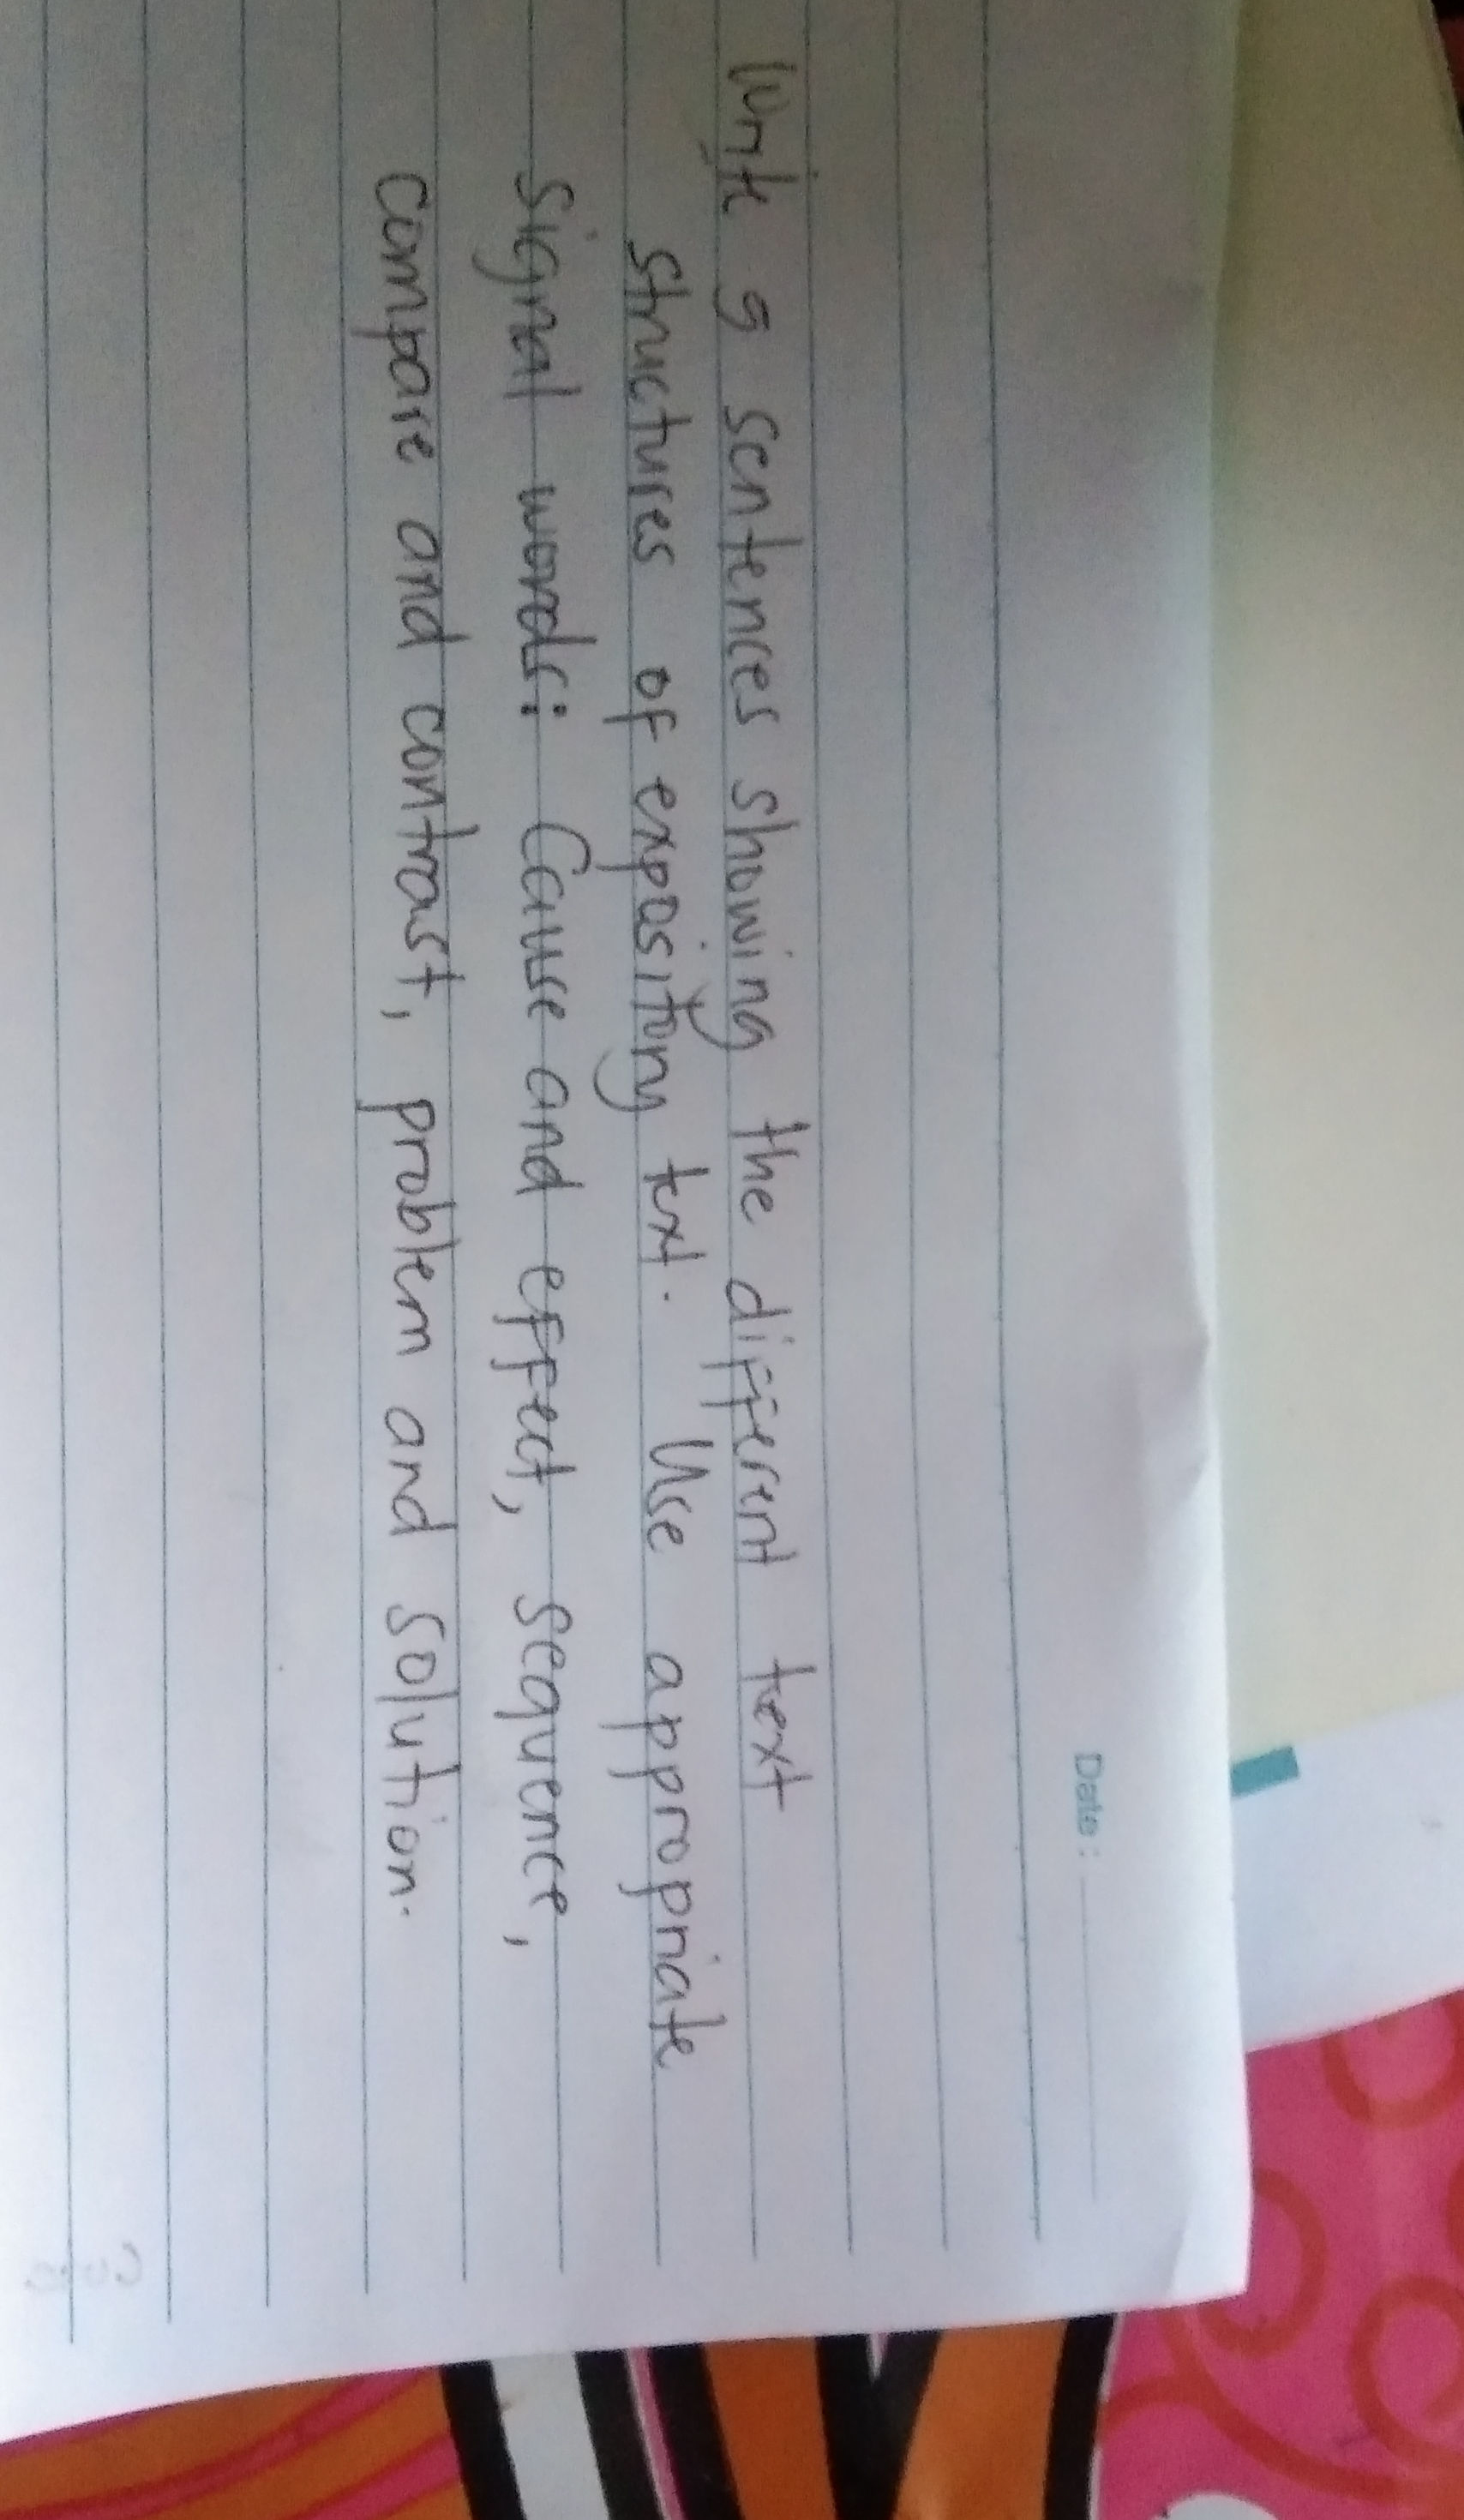 Date:
Write 5 sentences showing the different text
structures of expository text. Use appropriate
signal words: Cause and effect, sequence,
compare and contrast, problem and solution.